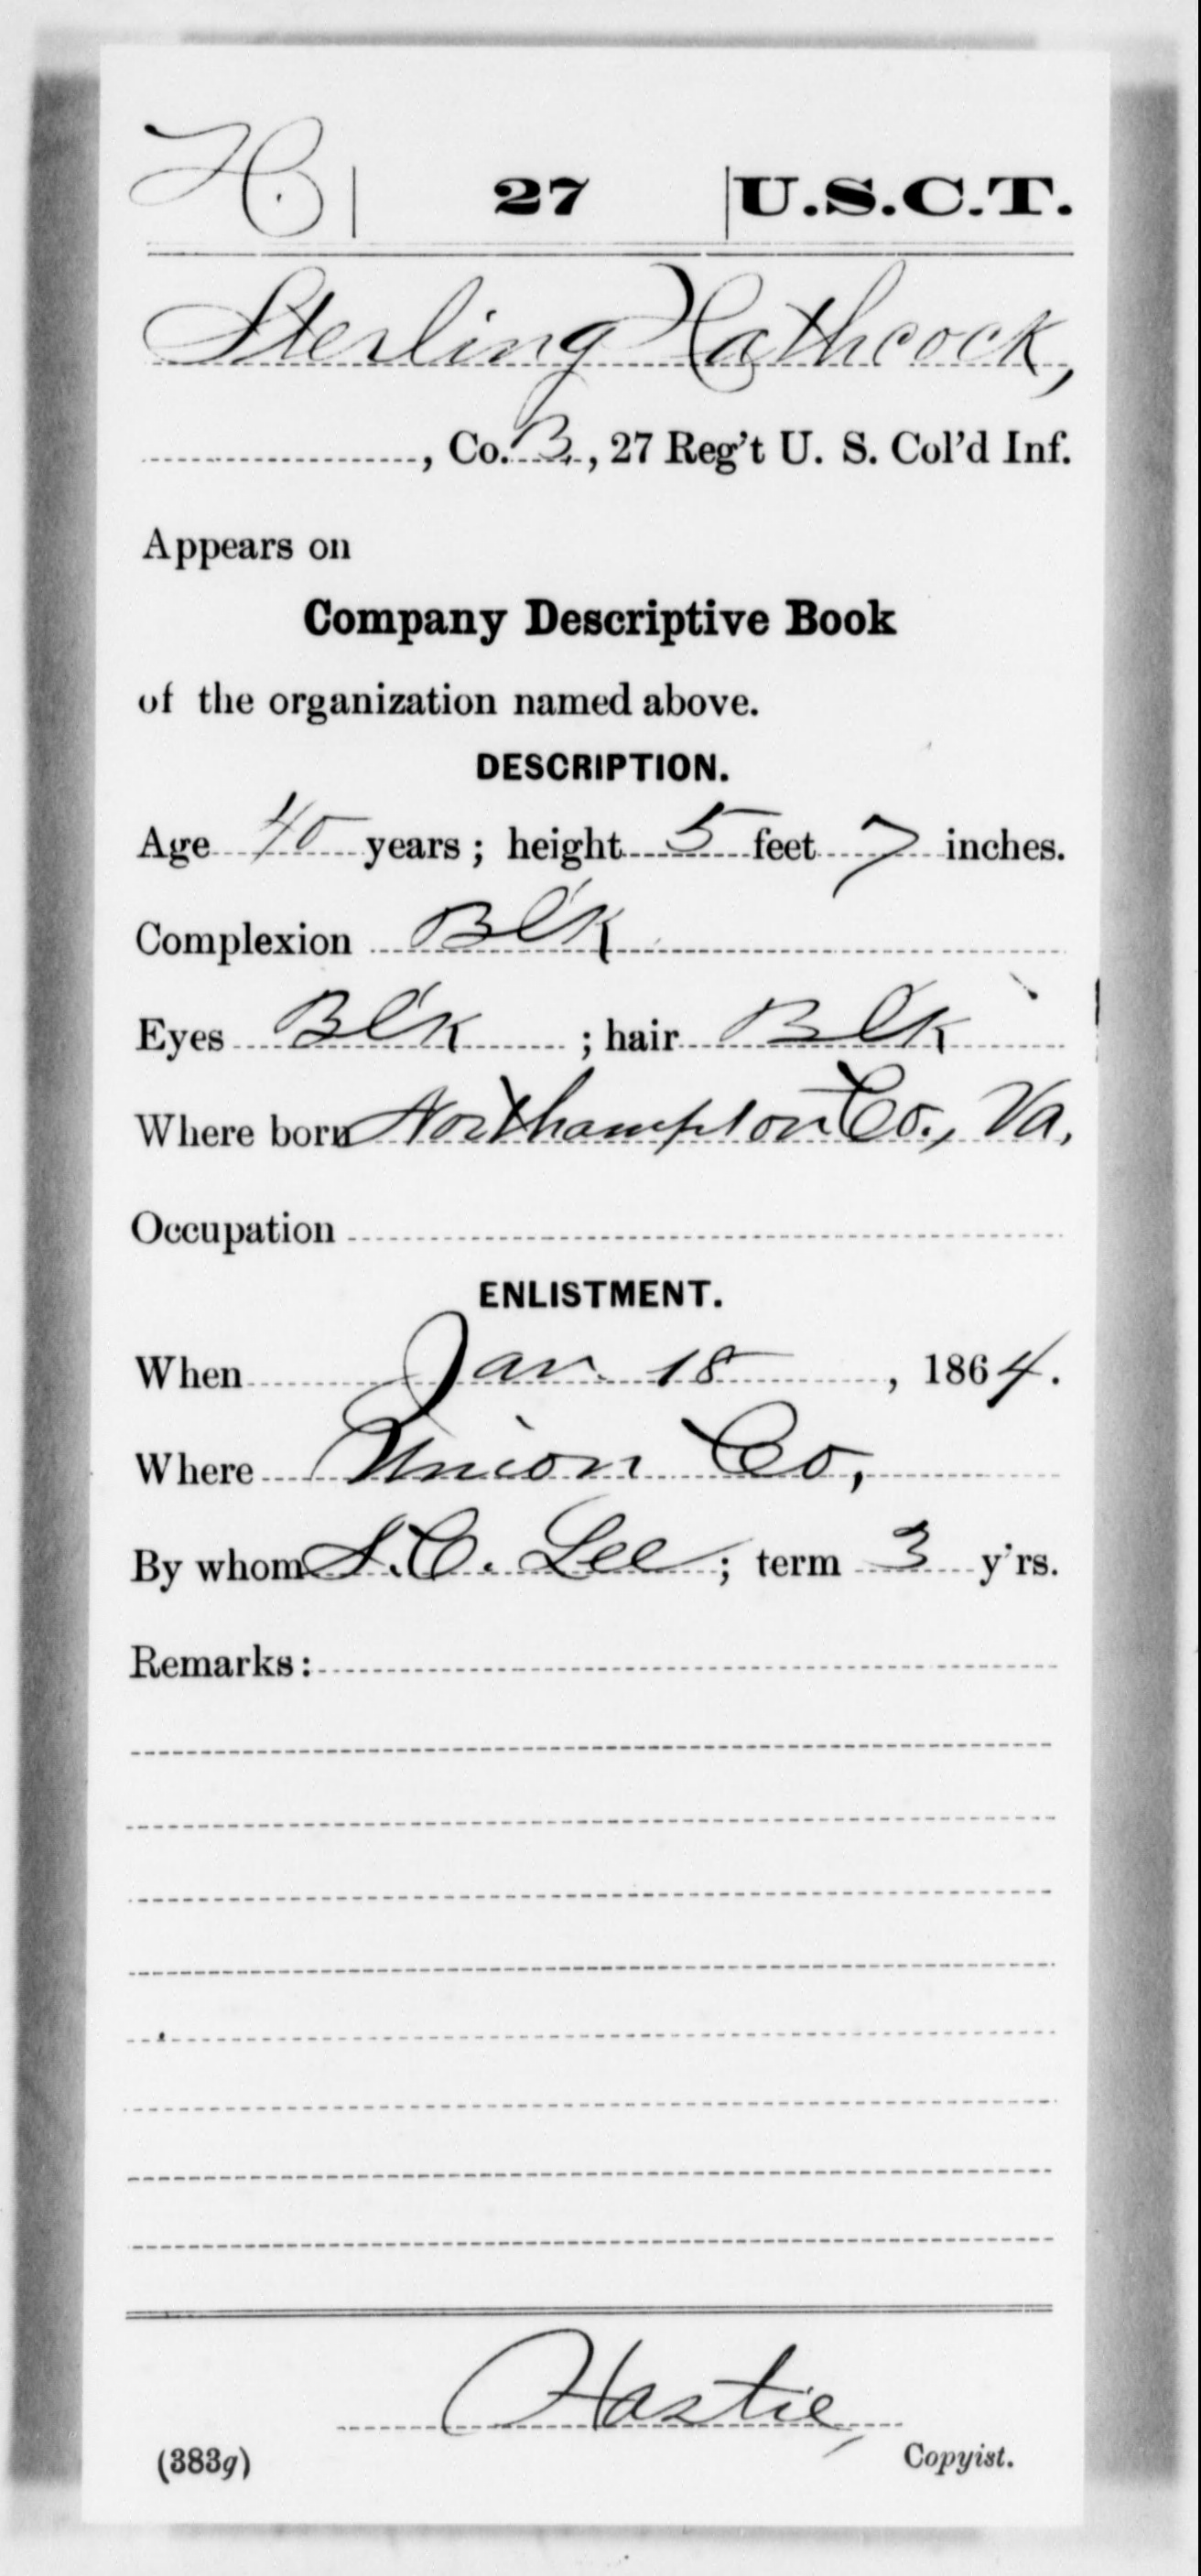 H. | 27 | U.S.C.T.
Sterling Hathcock,
, Co. B., 27 Reg't U. S. Col'd Inf.
Appears on
Company Descriptive Book
of the organization named above.
DESCRIPTION.
Age 40 years; height 5 feet 7 inches.
Complexion Bl'k
Eyes Bl'k ; hair Bl'k
Where born Northampton Co., Va,
Occupation
ENLISTMENT.
When Jan. 18, 1864.
Where Union Co,
By whom S. C. Lee; term 3 y'rs.
Remarks:
Hastie,
(383g) Copyist.